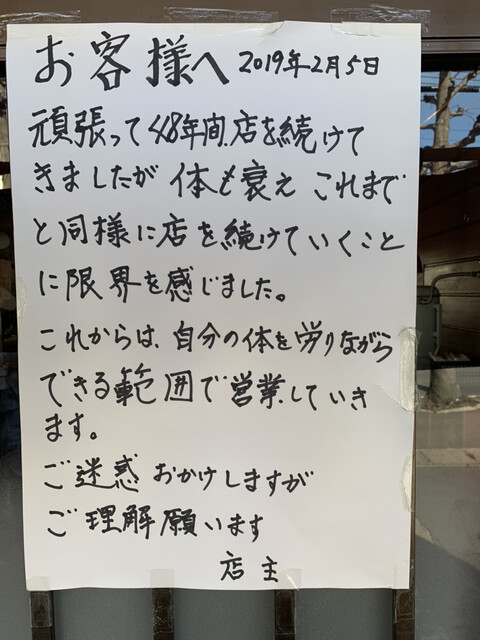 お客様へ 2019年2月5日
頑張って48年間、店を続けて
きましたが 体も衰え これまで
と同様に店を続けていくこと
に限界を感じました。
これからは、自分の体を労りながら
できる範囲で営業していき
ます。
ご迷惑おかけしますが
ご理解願います
店主